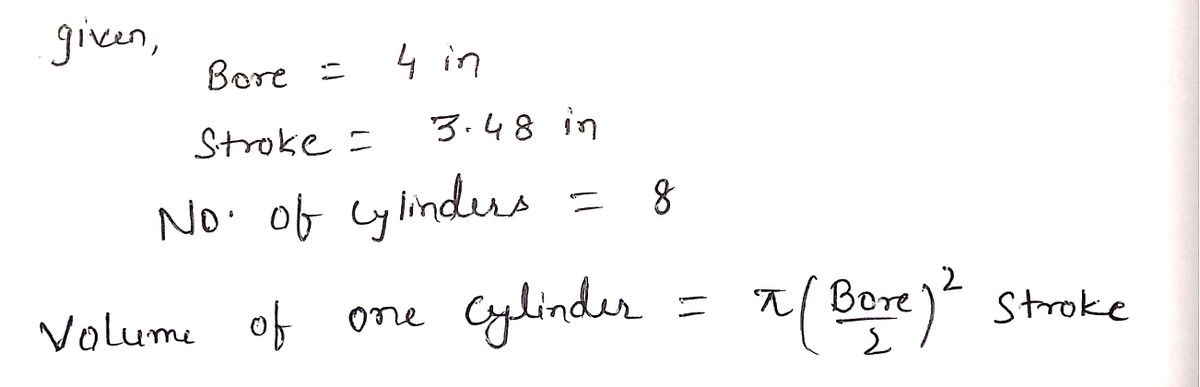 given,
Bore = 4 in
Stroke = 3.48 in
No. of cylinders = 8
Volume of one cylinder = π(Bore/2)² Stroke